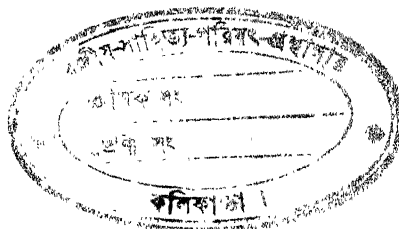 বঙ্গীয়-সাহিত্য-পরিষৎ-গ্রন্থাগার
ক্রমিক সং
গ্রন্থ সং
কলিকাতা ।